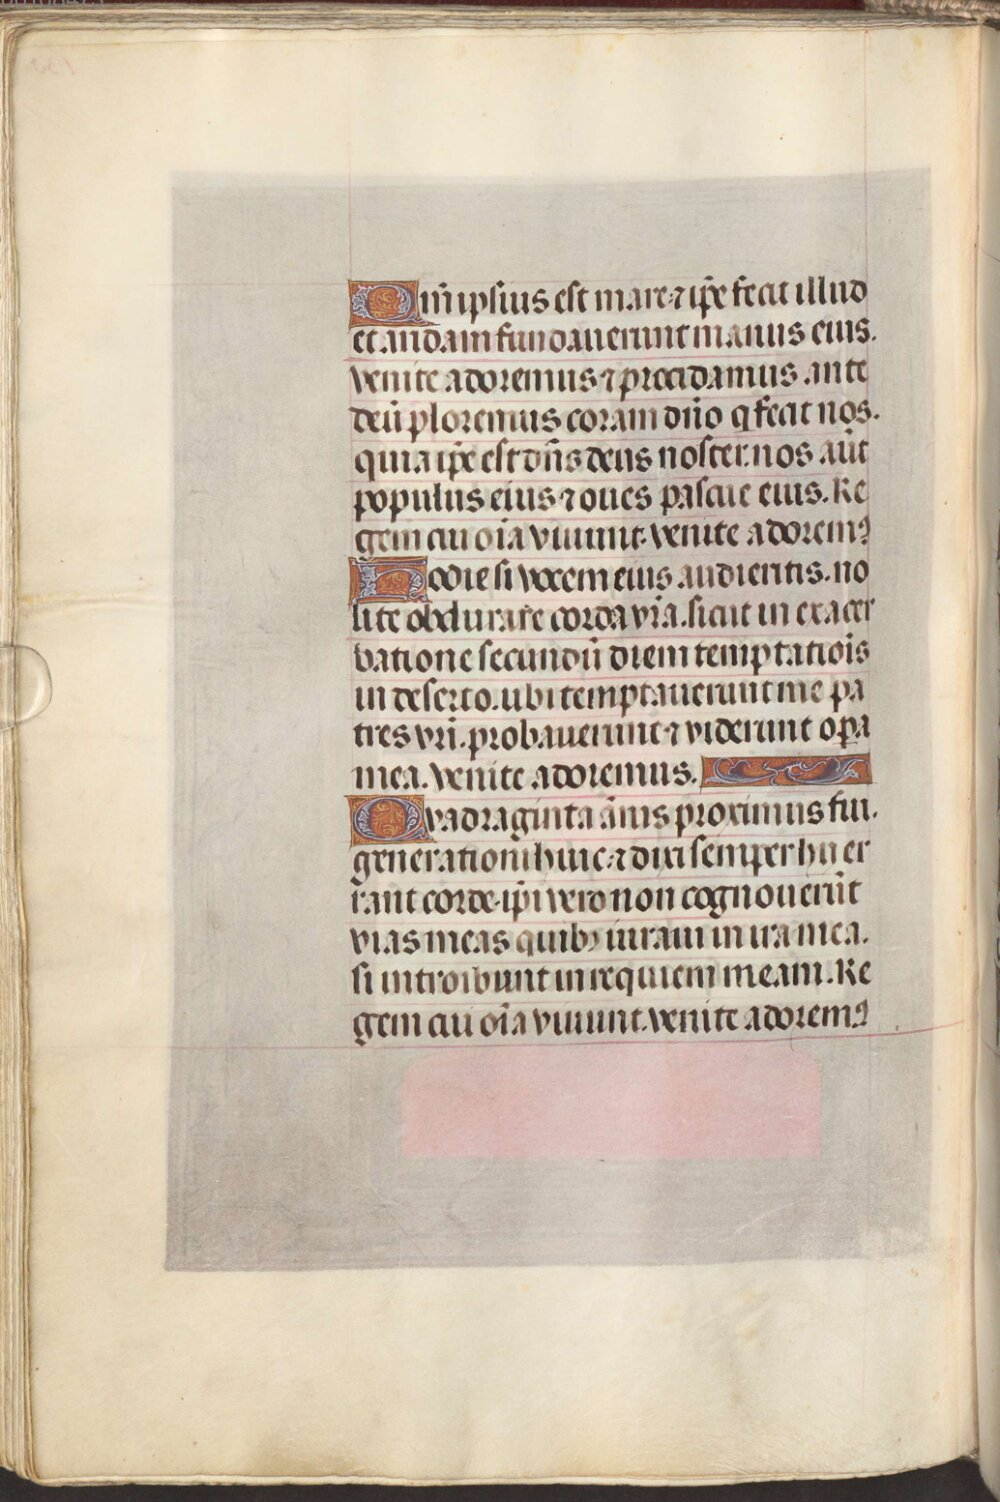 Qm̅ ipsius est mare ⁊ ip̅e fecit illud
et aridam fundauerunt manus eius.
venite adoremus ⁊ procidamus ante
deu̅ ploremus coram dn̅o q̇ fecit nos.
quia ip̅e est dn̅s deus noster. nos aut̅
populus eius ⁊ oues pascue eius. Re
gem cui oi̅a viuunt. venite adorem⁹
Hodie si vocem eius audieritis. no
lite obdurare corda vr̅a. sicut in exacer
batione secundu̅ diem temptatiois̅
in deserto. ubi temptauerunt me pa
tres vr̅i. probauerunt ⁊ viderunt op̲a
mea. venite adoremus.
Quadraginta an̅is proximus fui.
generationi huic. ⁊ dixi semper hii er
rant corde. ip̅i vero non cognoueru̅t
vias meas quib⁹ iuraui in ira mea.
si introibunt in requiem meam. Re
gem cui oi̅a viuunt. venite adorem⁹